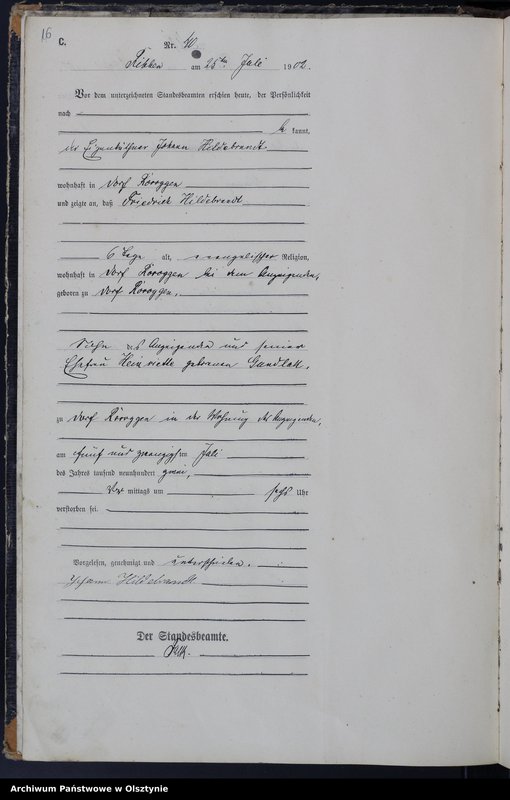 16
C.
Nr. 40
am 25ten Juli 1902.
Vor dem unterzeichneten Standesbeamten erschien heute, der Persönlichkeit
nach
kannt,
der Eigenkäthner Johann Hildebrandt
wohnhaft in Dorf Röroggen
und zeigte an, daß Friedrich Hildebrandt
6 Tage alt, evangelischer Religion,
wohnhaft in Dorf Röroggen bei dem Anzeigenden,
geboren zu Dorf Röroggen,
Sohn des Anzeigenden und seiner
Ehefrau Heinriette geborenen
zu Dorf Röroggen in der Wohnung des Anzeigenden,
am fünf und zwanzigsten Juli
des Jahres tausend neunhundert zwei,
Vor mittags um sechs Uhr
verstorben sei.
Vorgelesen, genehmigt und unterschrieben.
Johann Hildebrandt
Der Standesbeamte.
Archiwum Państwowe w Olsztynie